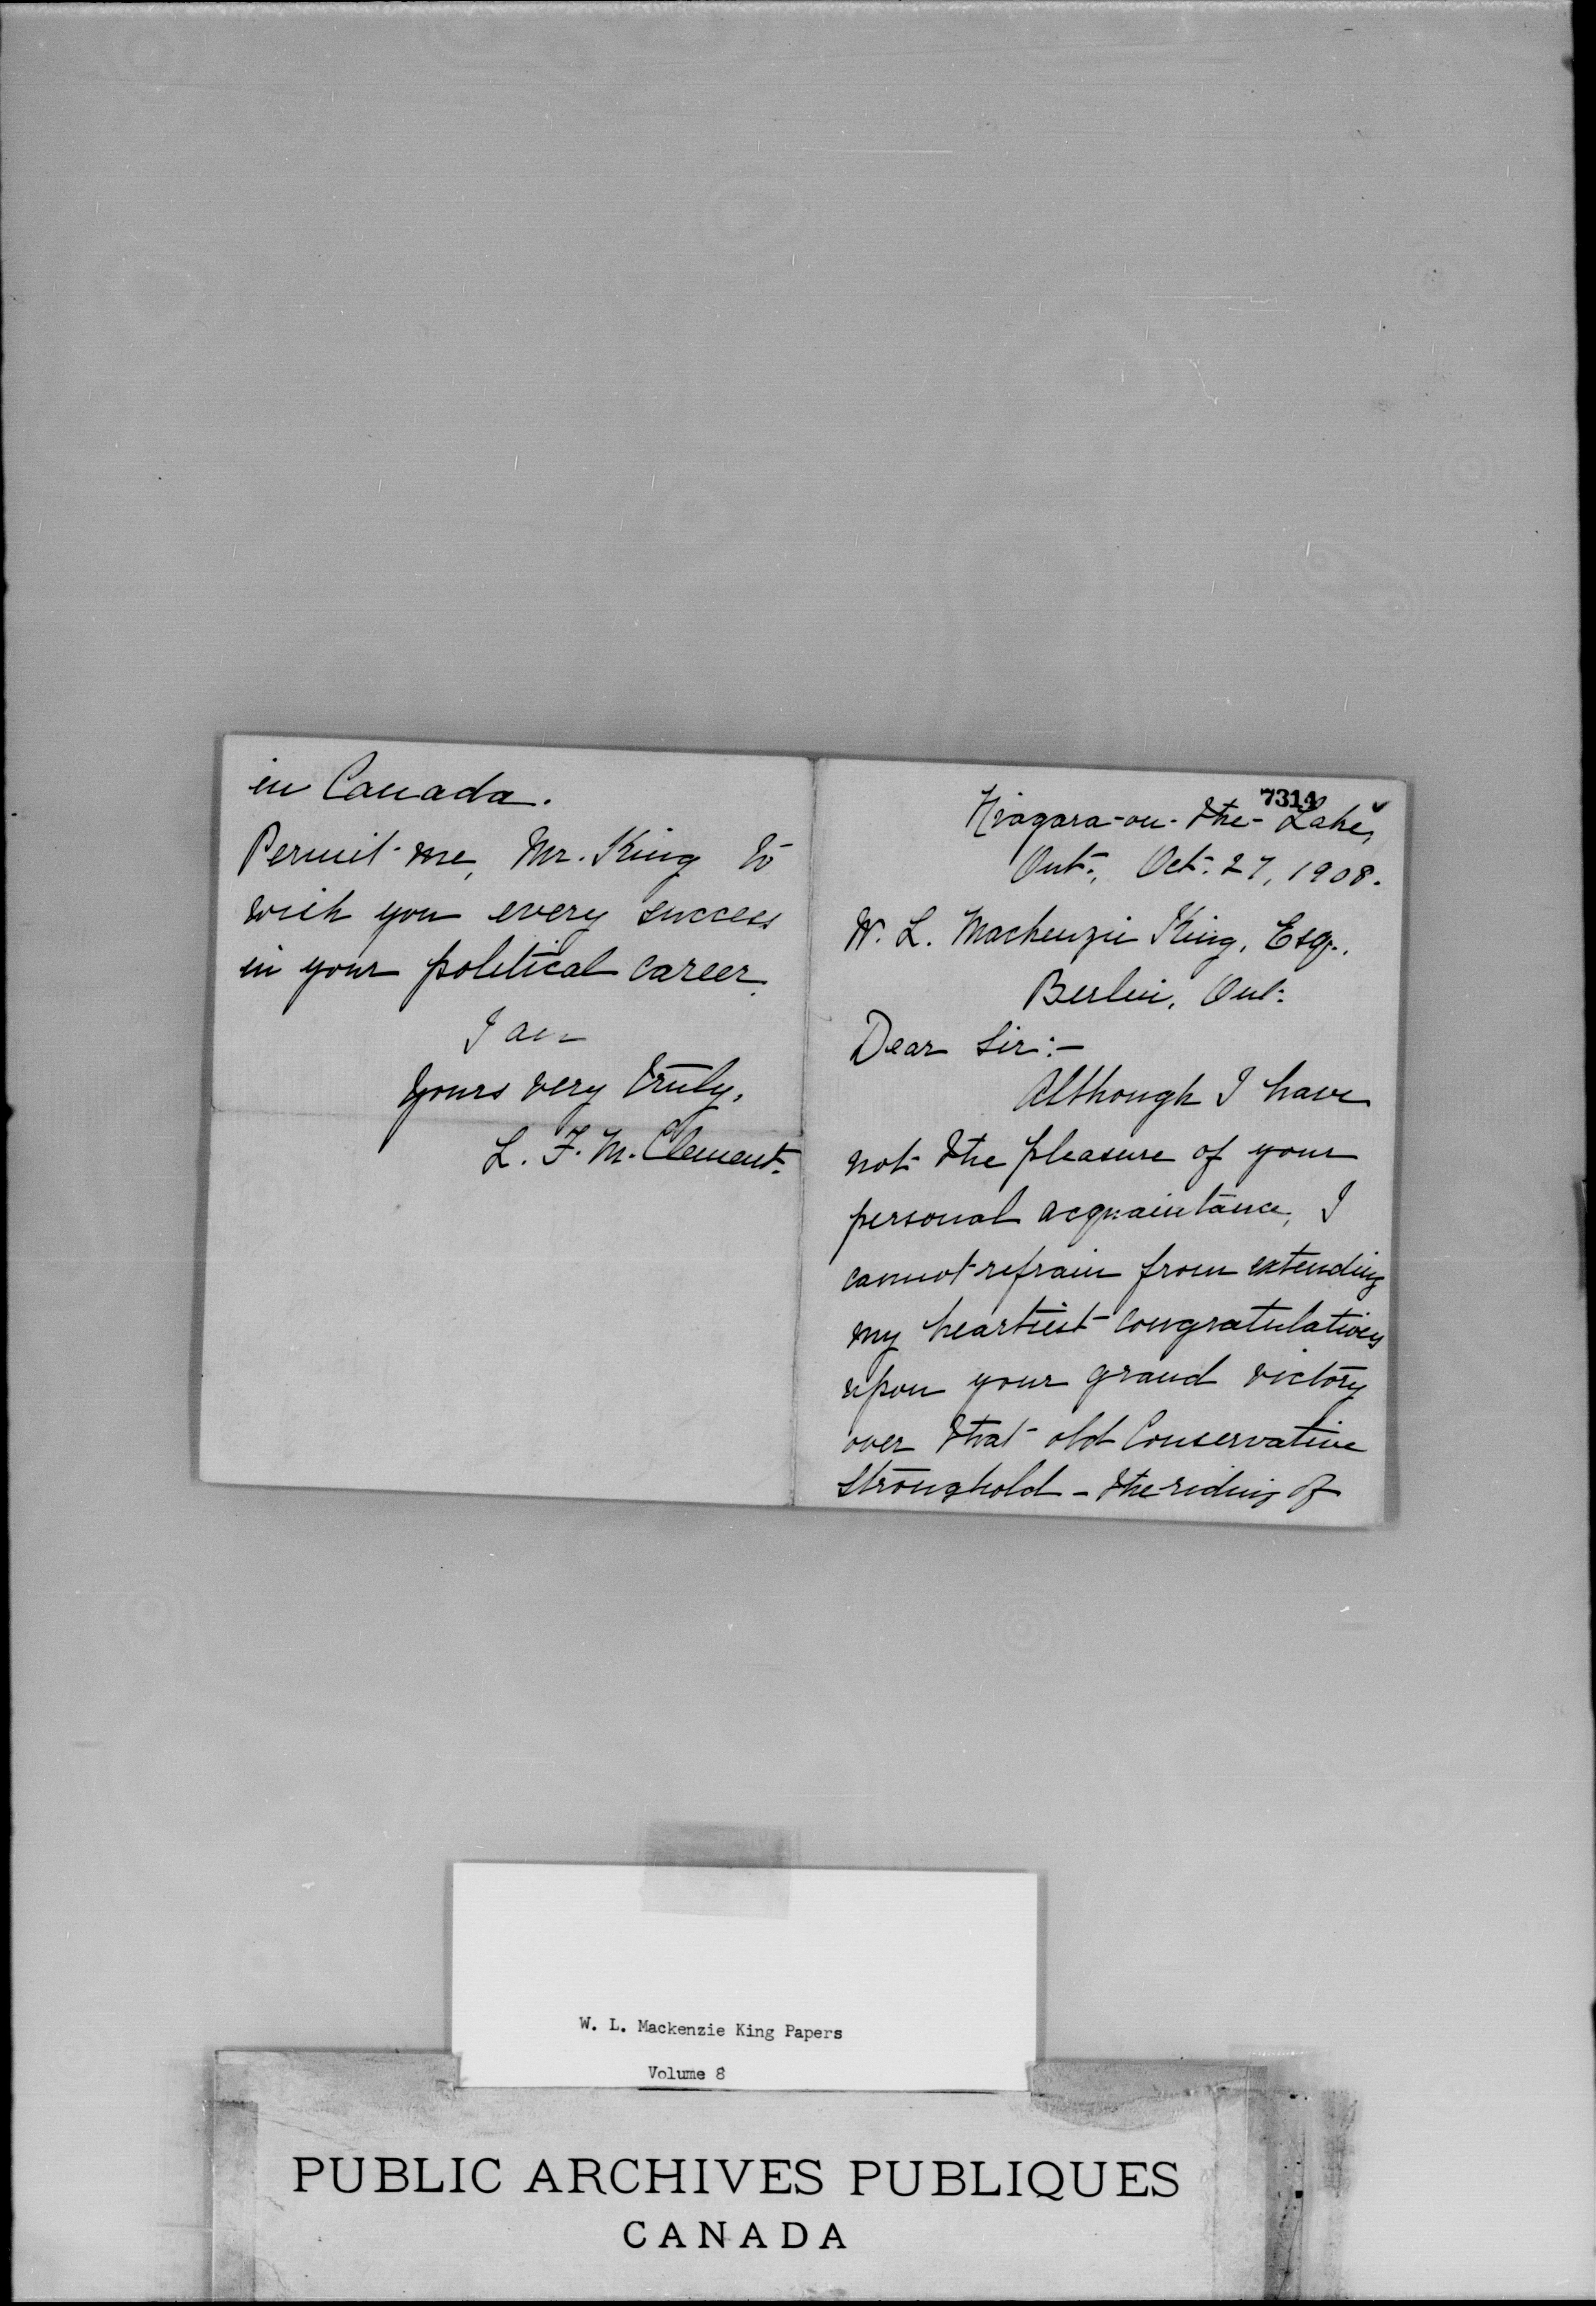 in Canada.
Permit me, Mr. King to
wish you every success
in your political career.
I am
Yours very truly,
L. F. M. Clement.
7314
Niagara-on-the-Lake,
Ont., Oct. 27, 1908.
W. L. Mackenzie King, Esq.,
Berlin, Ont.
Dear Sir:-
Although I have
not the pleasure of your
personal acquaintance, I
cannot refrain from extending
my heartiest congratulations
upon your grand victory
over that old Conservative
stronghold - the riding of
W. L. Mackenzie King Papers
Volume 8
PUBLIC ARCHIVES PUBLIQUES
CANADA